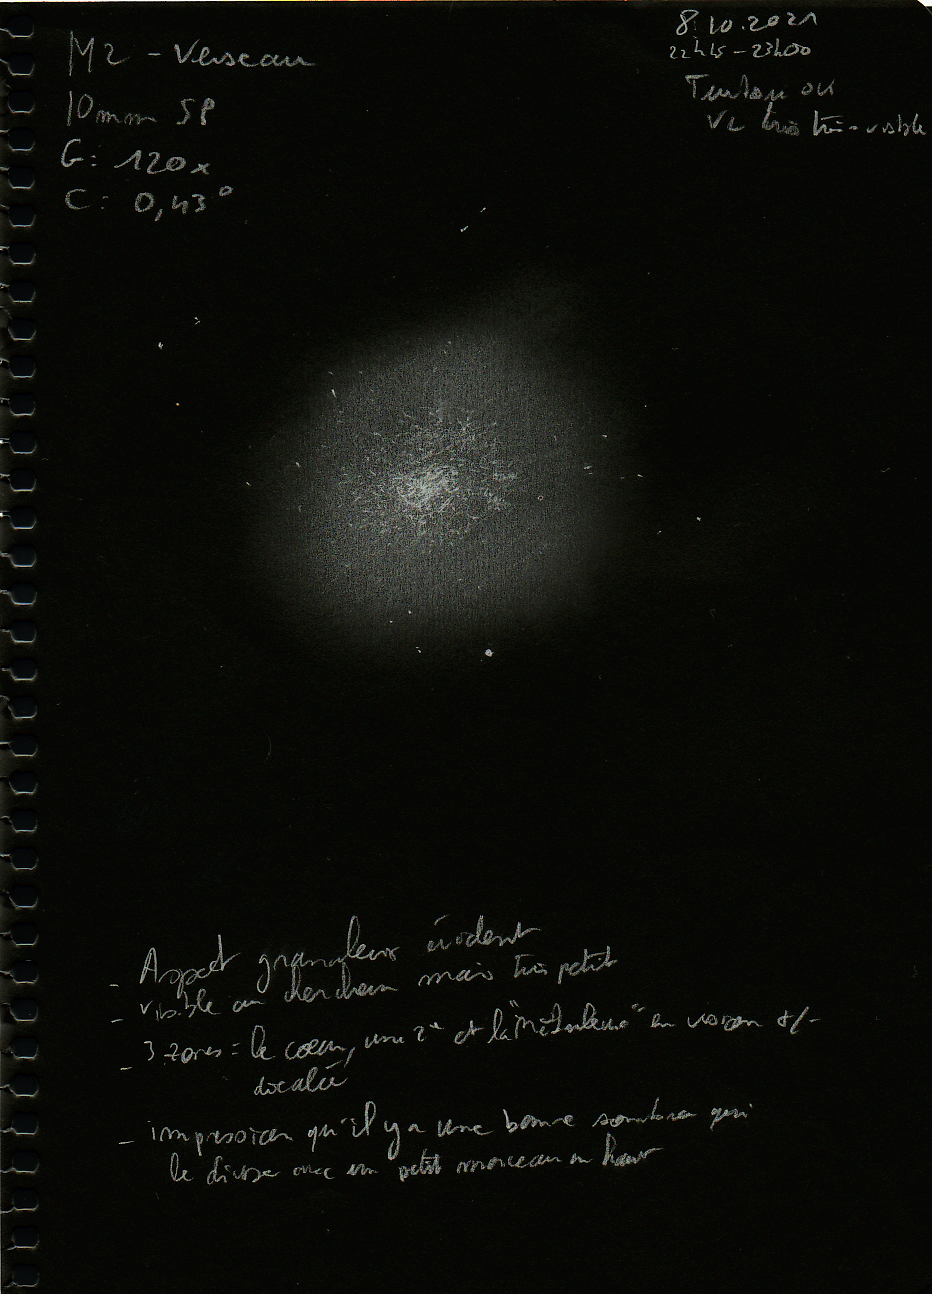 M2 - Verseau
8.10.2021
22h15 - 23h00
10mm SP
G: 120x
C: 0,43°
très très visible
- Aspect granuleux évident
- visible au chercheur mais très petit
- 3 zones = le coeur, une 2e et la "nébuleuse" en vision +/-
décalée
- impression qu'il y a une bande sombre qui
le divise avec un petit morceau en haut